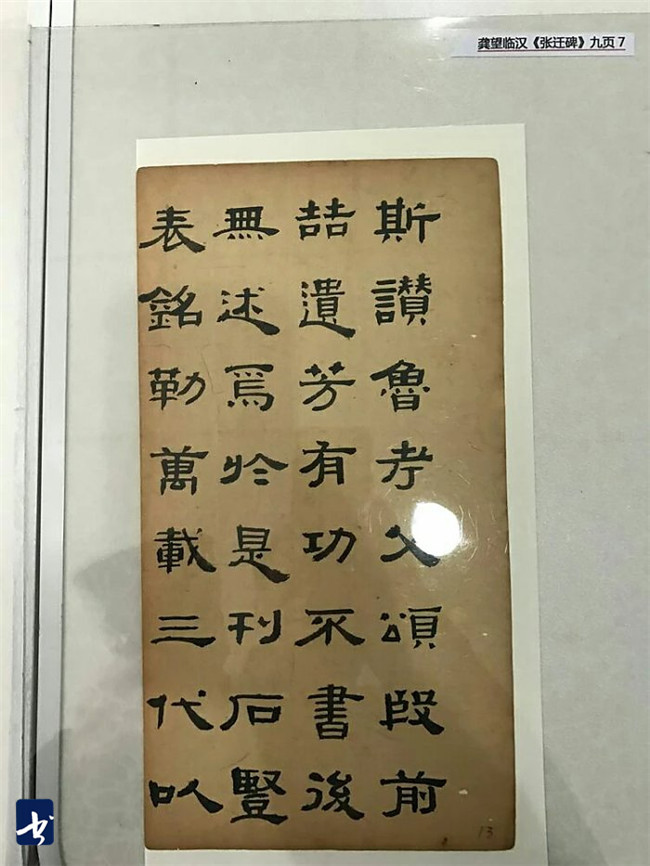 龚望临汉《张迁碑》九页 7
斯讚魯考父頌殷前
喆遺芳有功不書後
無述焉於是刊石豎
表銘勒萬載三代以
13
书